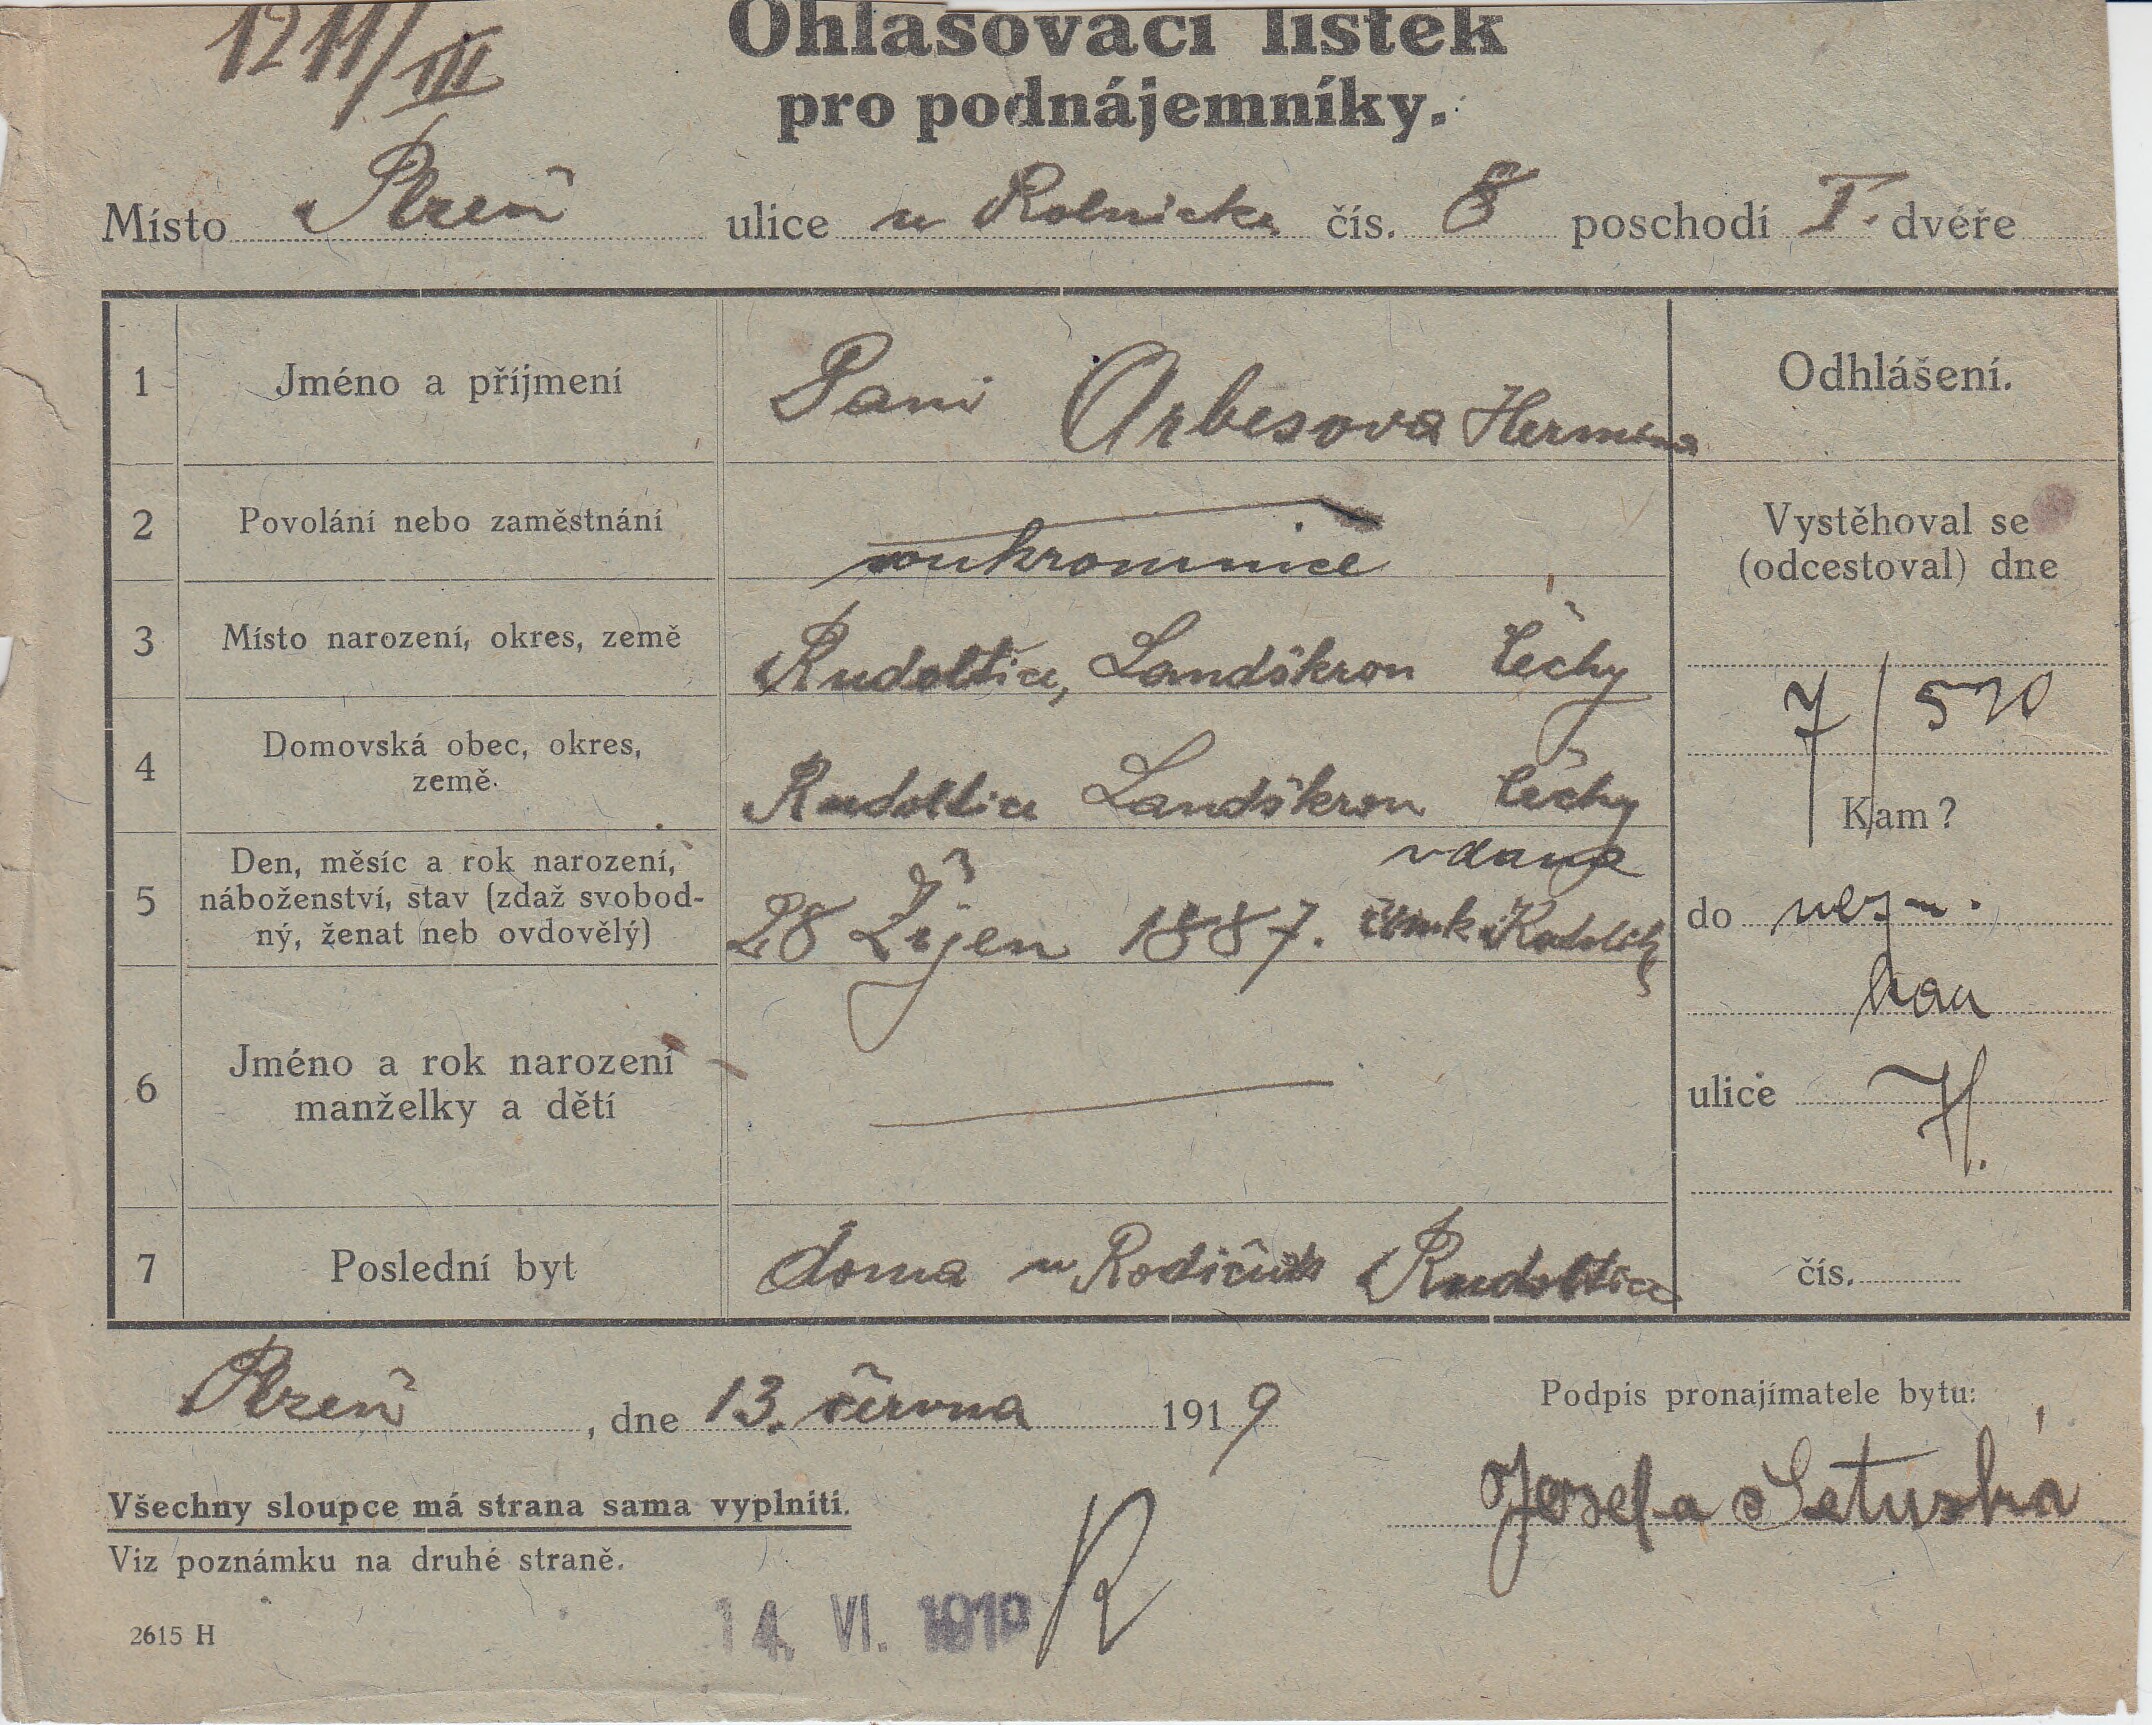 1211/III
Ohlašovací lístek
pro podnájemníky.
Místo Plzeň ulice u Rolnicke čís. 8 poschodí I. dvéře
1 Jméno a příjmení Pani Arbesova Hermina
Odhlášení.
2 Povolání nebo zaměstnání soukromnice
Vystěhoval se
(odcestoval) dne
7/5 20
3 Místo narození, okres, země Rudoltice, Landškron Čechy
4 Domovská obec, okres,
země. Rudoltice Landškron Čechy
Kam?
5 Den, měsíc a rok narození,
náboženství, stav (zdaž svobod-
ný, ženat neb ovdovělý)
vdana
28 Žijen 1887.
do nezn.
kam
6 Jméno a rok narození
manželky a dětí
ulice
7 Poslední byt doma u Rodičů Rudoltice
čís.
Plzeň, dne 13. června 1919
Podpis pronajímatele bytu:
Josefa
Všechny sloupce má strana sama vyplniti.
Viz poznámku na druhé straně.
2615 H
14. VI. 1919